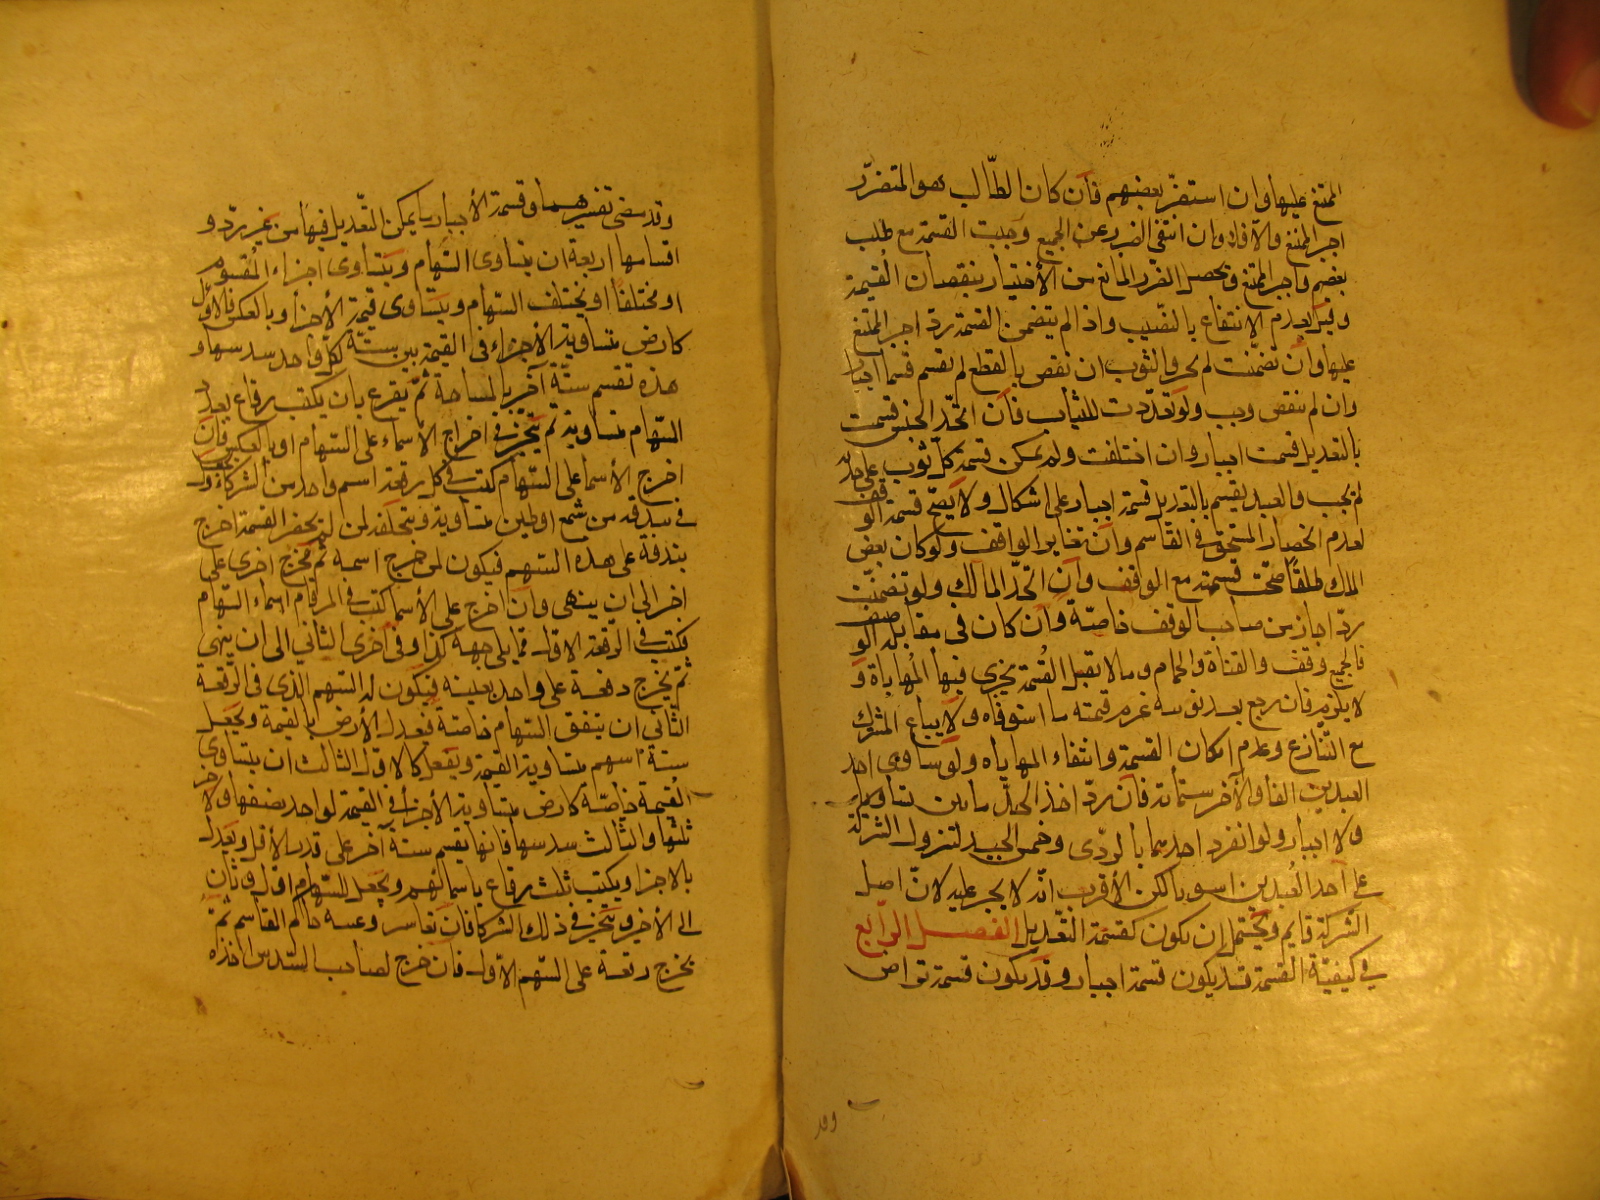 الممتنع عليها وان استضر بعضهم فان كان الطالب هو المتضرر
اجبر الممتنع والا فلا وان انتفى الضرر عن الجميع وجبت القسمة مع طلب
بعضهم واجبر الممتنع ويحصل الضرر المانع من الأختيار بنقصان القيمة
وقيل بعدم الانتفاع بالنصيب واذا لم يتضمن القسمة ردّ اجبر الممتنع
عليها وان تضمّنت لم يجبر والثوب ان نقص بالقطع لم يقسم قسمة اجبار
وان لم ينقص وجب ولو تعدّدت الثياب فان اتحّد الجنس قسمت
بالتعديل قسمة اجبار وان اختلفت ولم يمكن قسمة كل ثوب على حدته
لم يجب والعبيد يقسم بالتعديل قسمة اجبار على اشكال ولا يصح قسمة الوقف
لعدم انحصار المستحق في القاسم وان تغاير الواقف ولو كان بعض
الملك طلقا صحت قسمته مع الوقف وان اتحّد المالك ولو تضمنت
ردّ اجاز من صاحب الوقف خاصّة وان كان في مقابلة الوصف
فالجميع وقف والقناة والحمام وما لا تقبل القسمة يجرى فيها المهاياة و
لا يلزم فان رجع بعد نوبته غرم قيمته ما استوفاه ولا يباع المشترك
مع التّنازع وعدم امكان القسمة وانتفاء المهاياه ولو ساوى احد
العبدين الفا والآخر ستمائة فان ردّ اخذ الجيّد مايتين تساويا
ولا اجبار ولو انفرد احدهما بالردّى وخمس الجيد لتزول الشركة
على احد العبدين استويا لكن الأقرب انّه لا يجبر عليه لانّ اصل
الشركة قايم ويحتمل ان يكون كقسمة التّعديل الفصل الرّابع
في كيفيّة القسمة قد يكون قسمة اجبار وقد يكون قسمة تراض
وقد
وقد مضى تفسيرهما وقسمة الأجبار ما يمكن التّعديل فيها من غير ردّ و
اقسامها اربعة ان يتساوى السّهام ويتساوى اجزاء المقسوم
او مختلفا او يختلف السّهام ويتساوى قيمة الأجزا وبالعكس فالاوّل
كارض متساوية الأجزاء في القيمة بين ستّة لكل واحد سدسها و
هذه تقسم ستّة آجر بالمساحة ثمّ يقرع بان يكتب رقاع بعدد
السّهام متساوية ثم يتخير في اخراج الأسماء على السّهام او بالعكس فان
اخرج الأسما على السّهام كتب في كل رقعة اسم واحد من الشركاء و
في بندقة من شمع او طين متساوية ويتحلفه لمن لم يحضر القسمة اخرج
بندقة على هذه السّهم فيكون لمن خرج اسمه ثم تخرج اخرى على
اخر الى ان ينتهى وان اخرج على الأسما كتب في الرقاع اسماء السّهام
فكتب في الرّقعة الاولى مما يلى جهة كذا وفى اخرى الثاني الى ان ينتهى
ثم يخرج دفعة على واحد بعينه فيكون له السّهم الذى فى الرّقعة
الثانى ان يتفق السّهام خاصّة فيعدل الأرض بالقيمة ويجعل
ستة اسهم متساوية القيمة ويفعل كالاوّل الثالث ان يتساوى
القيمة خاصّة كارض متساوية الأجزاء في القيمة لواحد نصفها ولاخر
ثلثها والثالث سدسها فانها يقسم ستة آجر على قدر الأقل ويعدل
بالاجزا ويكتب ثلث رقاع باسمائهم ويجعل للسّهام اوّل وثان
الى الأخير ويتخير في ذلك الشركا فان تعاسر وعينه حاكم القاسم ثمّ
يخرج رقعة على السّهم الاوّل فان خرج لصاحب السّدس اخذه